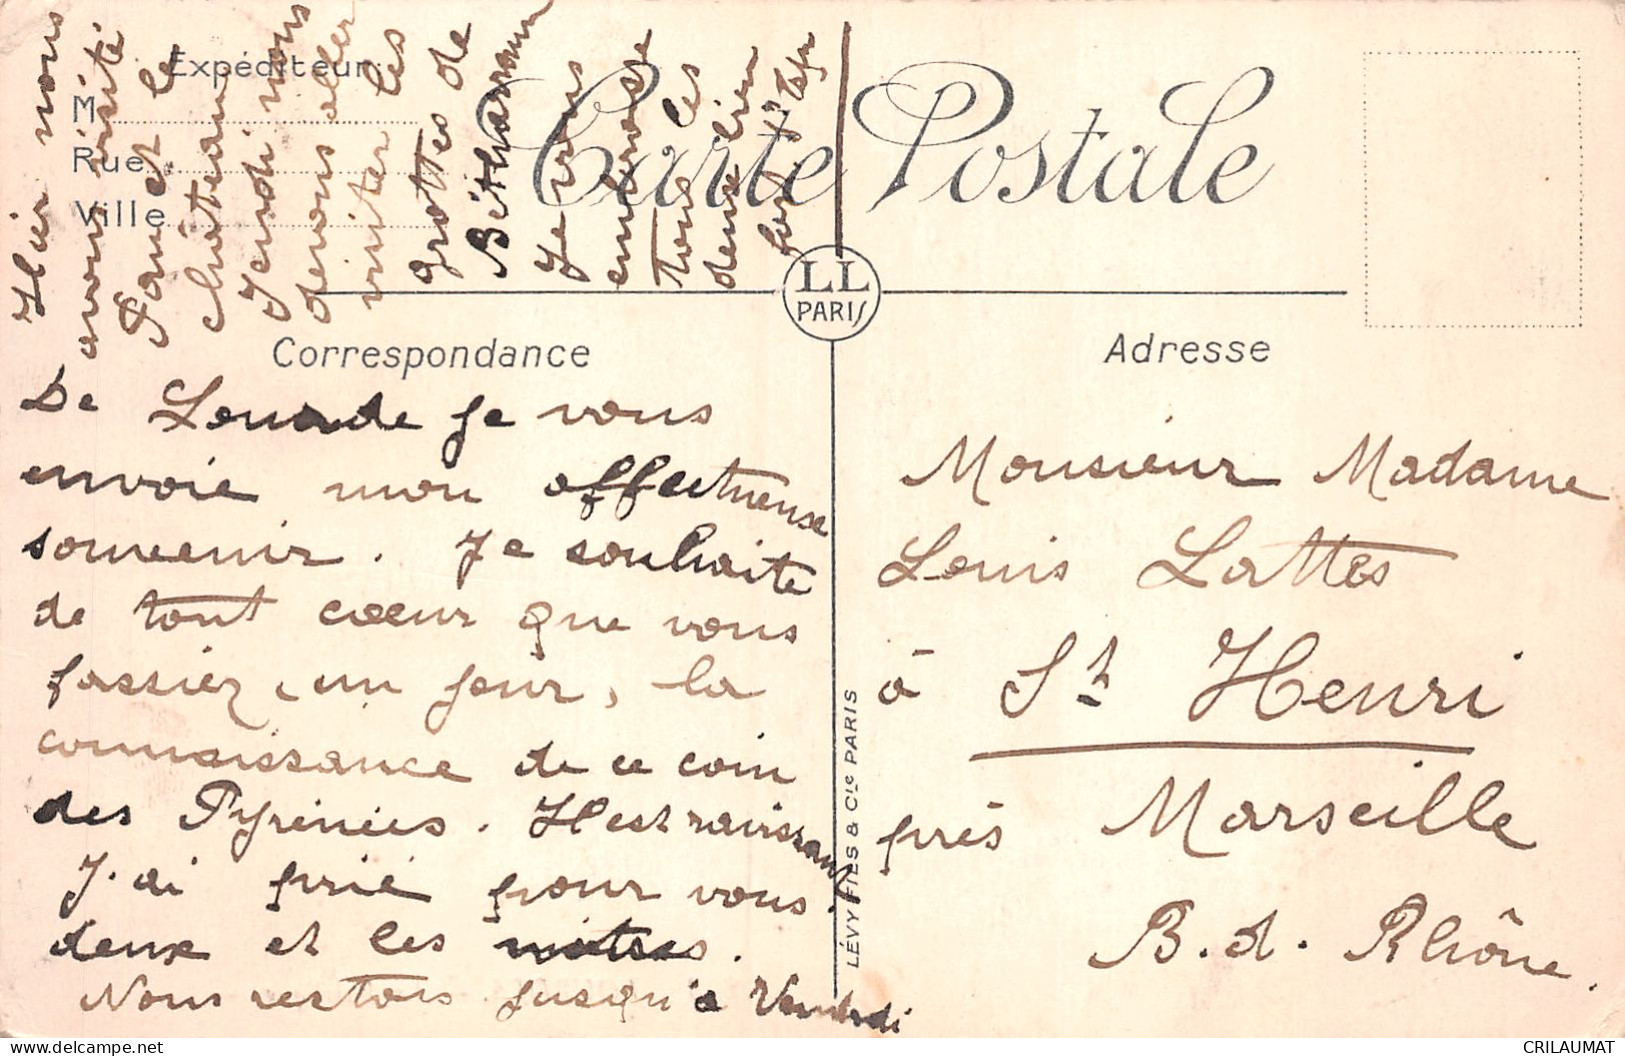 Expéditeur
M
Rue
Ville
Carte Postale
LL
PARIS
Correspondance
Adresse
De Lourde je vous
envoie mon affectueuse
souvenir. Je souhaite
de tout cœur que vous
fassiez, un jour, la
connaissance de ce coin
des Pyrénées. Il est ravissant
J'ai prié pour vous
deux et les nôtres.
Nous restons jusqu'à Vendredi
Hier nous
avons visité
Pau et le
château
Jeudi nous
devons aller
visiter les
grottes de
Bétharam
Je vous
embrasse
tous les
deux bien
fort
LÉVY FILS & Cie PARIS
Monsieur Madame
Louis Lattes
à St Henri
près Marseille
B. d. Rhône.
CRILAUMAT